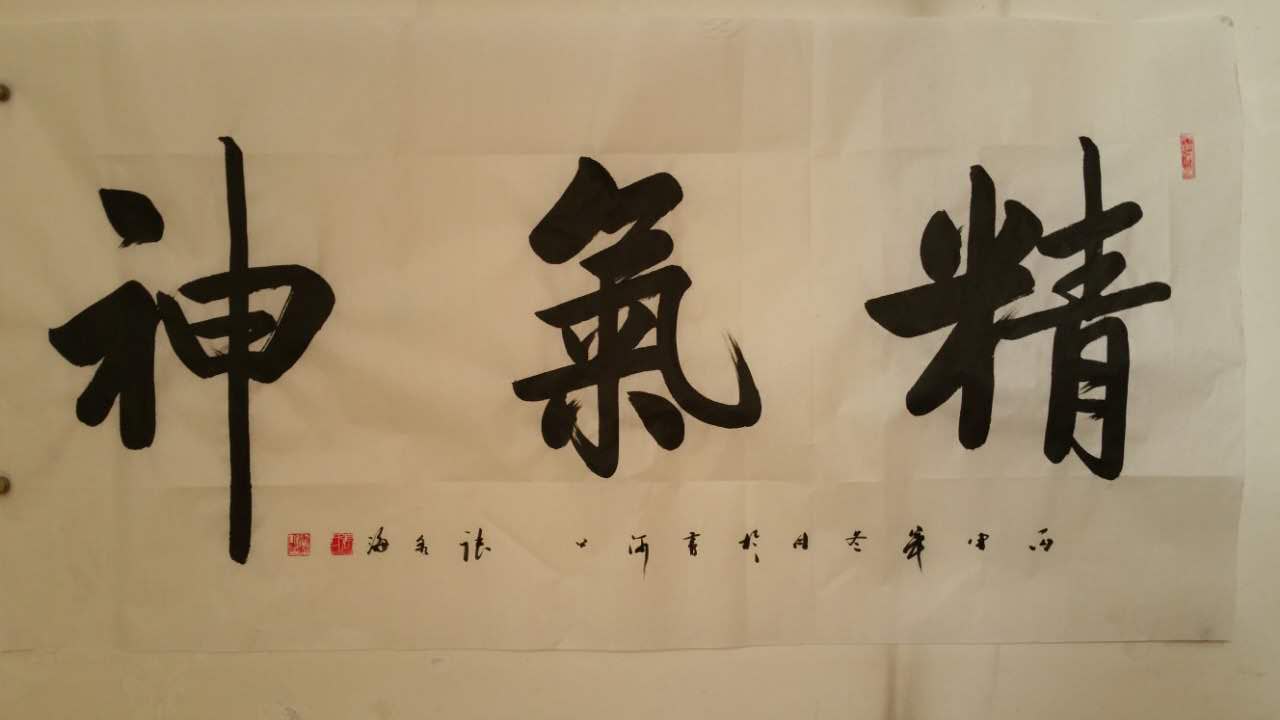 精氣神
丙申年冬月於青河上張永海